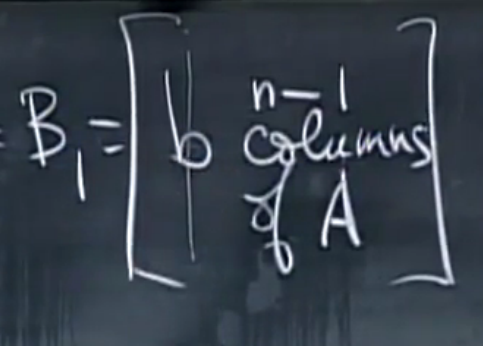 B₁ = [ b | n-1
columns
of A ]